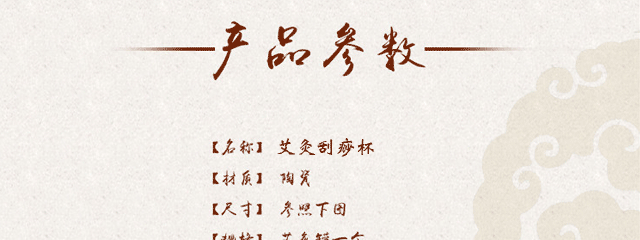 产品参数
【名称】 艾灸刮痧杯
【材质】 陶瓷
【尺寸】 参照下图